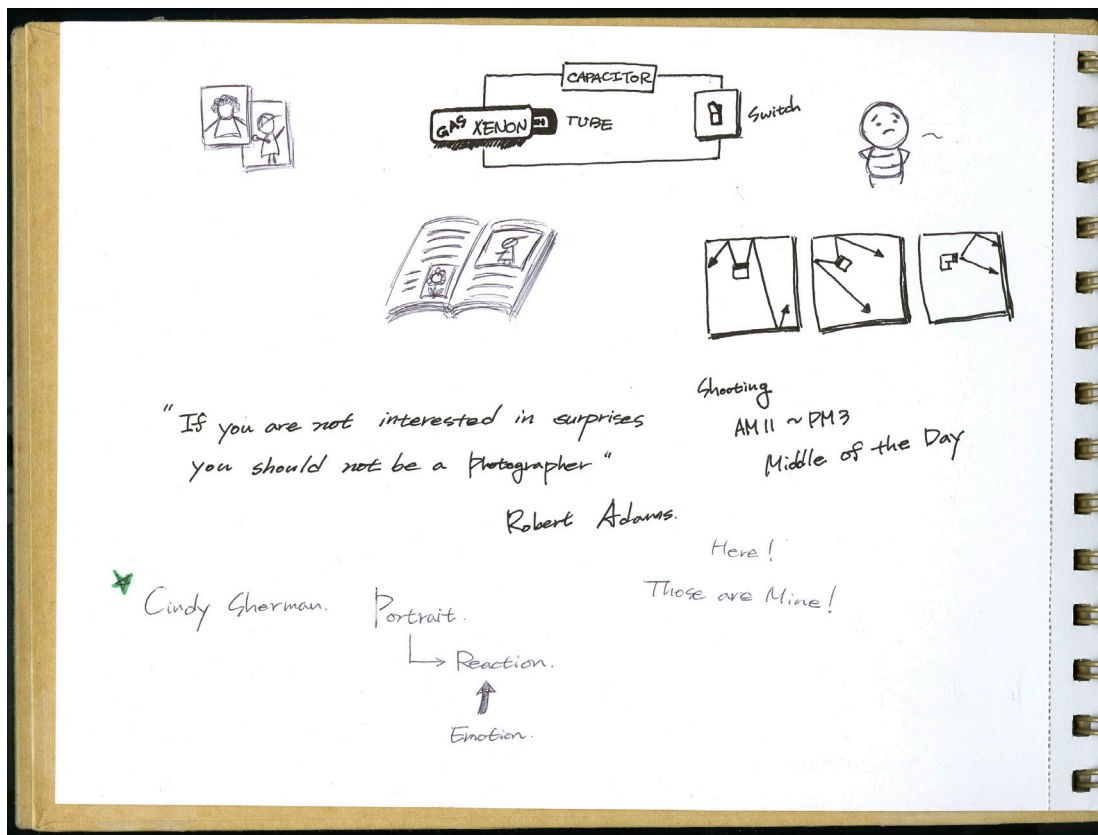 CAPACITOR
GAS XENON TUBE
Switch
"If you are not interested in surprises
you should not be a photographer"
Robert Adams.
Shooting
AM 11 ~ PM 3
Middle of the Day
Here!
Those are Mine!
Cindy Sherman. Portrait.
Reaction.
Emotion.